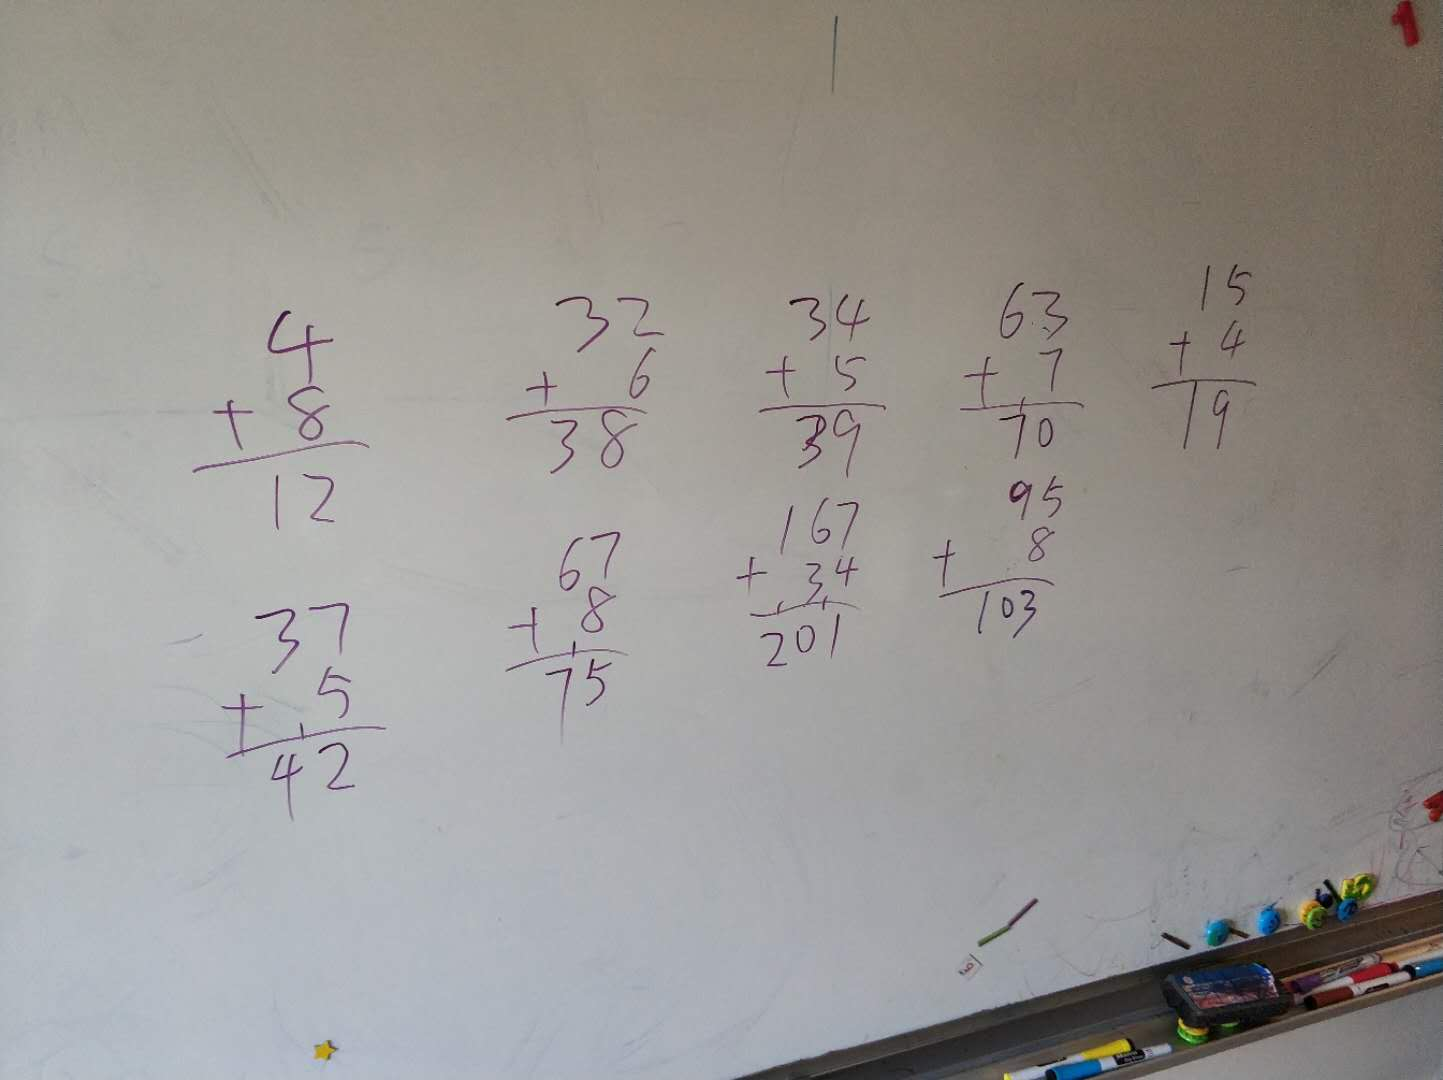 4
+ 8
12
32
+ 6
38
34
+ 5
39
63
+ 7
70
15
+ 4
19
37
+ 5
42
67
+ 8
75
167
+ 34
201
95
+ 8
103
1